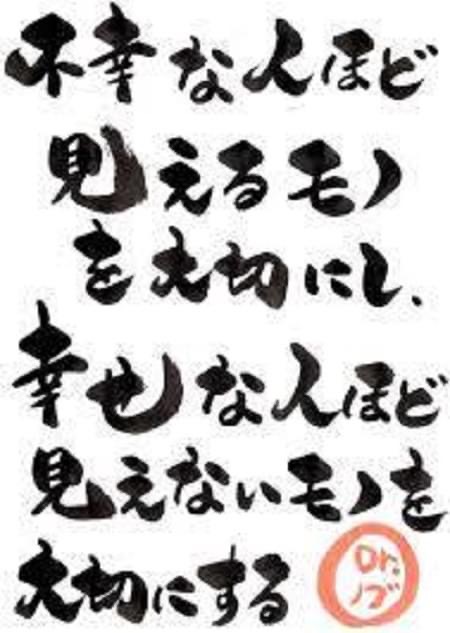 不幸な人ほど
見えるモノ
を大切にし、
幸せな人ほど
見えないモノを
大切にする
Dr.
ノブ